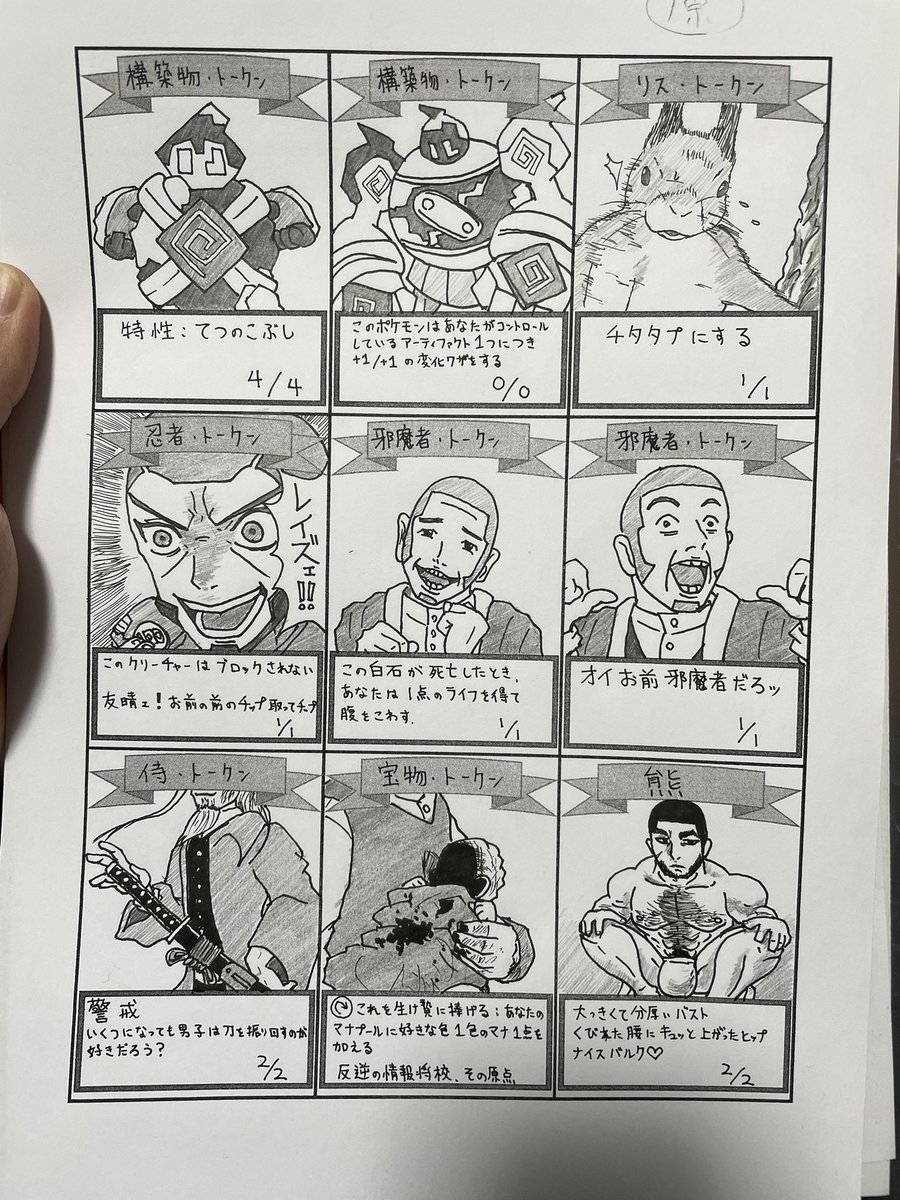 原
構築物・トークン
特性：てつのこぶし
4/4
構築物・トークン
このポケモンはあなたがコントロール
しているアーティファクト1つにつき
+1/+1の変化ワザをする
0/0
リス・トークン
チタタプにする
1/1
忍者・トークン
レイズェ!!
このクリーチャーはブロックされない
友晴ェ！お前の前のチップ取ってチップ
1/1
邪魔者・トークン
この白石が死亡したとき、
あなたは1点のライフを得て
腹をこわす.
1/1
邪魔者・トークン
オイお前邪魔者だろッ
1/1
侍・トークン
警戒
いくつになっても男子は刀を振り回すのが
好きだろう？
2/2
宝物・トークン
②これを生け贄に捧げる：あなたの
マナプールに好きな色1色のマナ1点を
加える
反逆の情報将校、その原点
熊
大っきくて分厚いバスト
くびれた腰にキュッと上がったヒップ
ナイスバルク♡
2/2